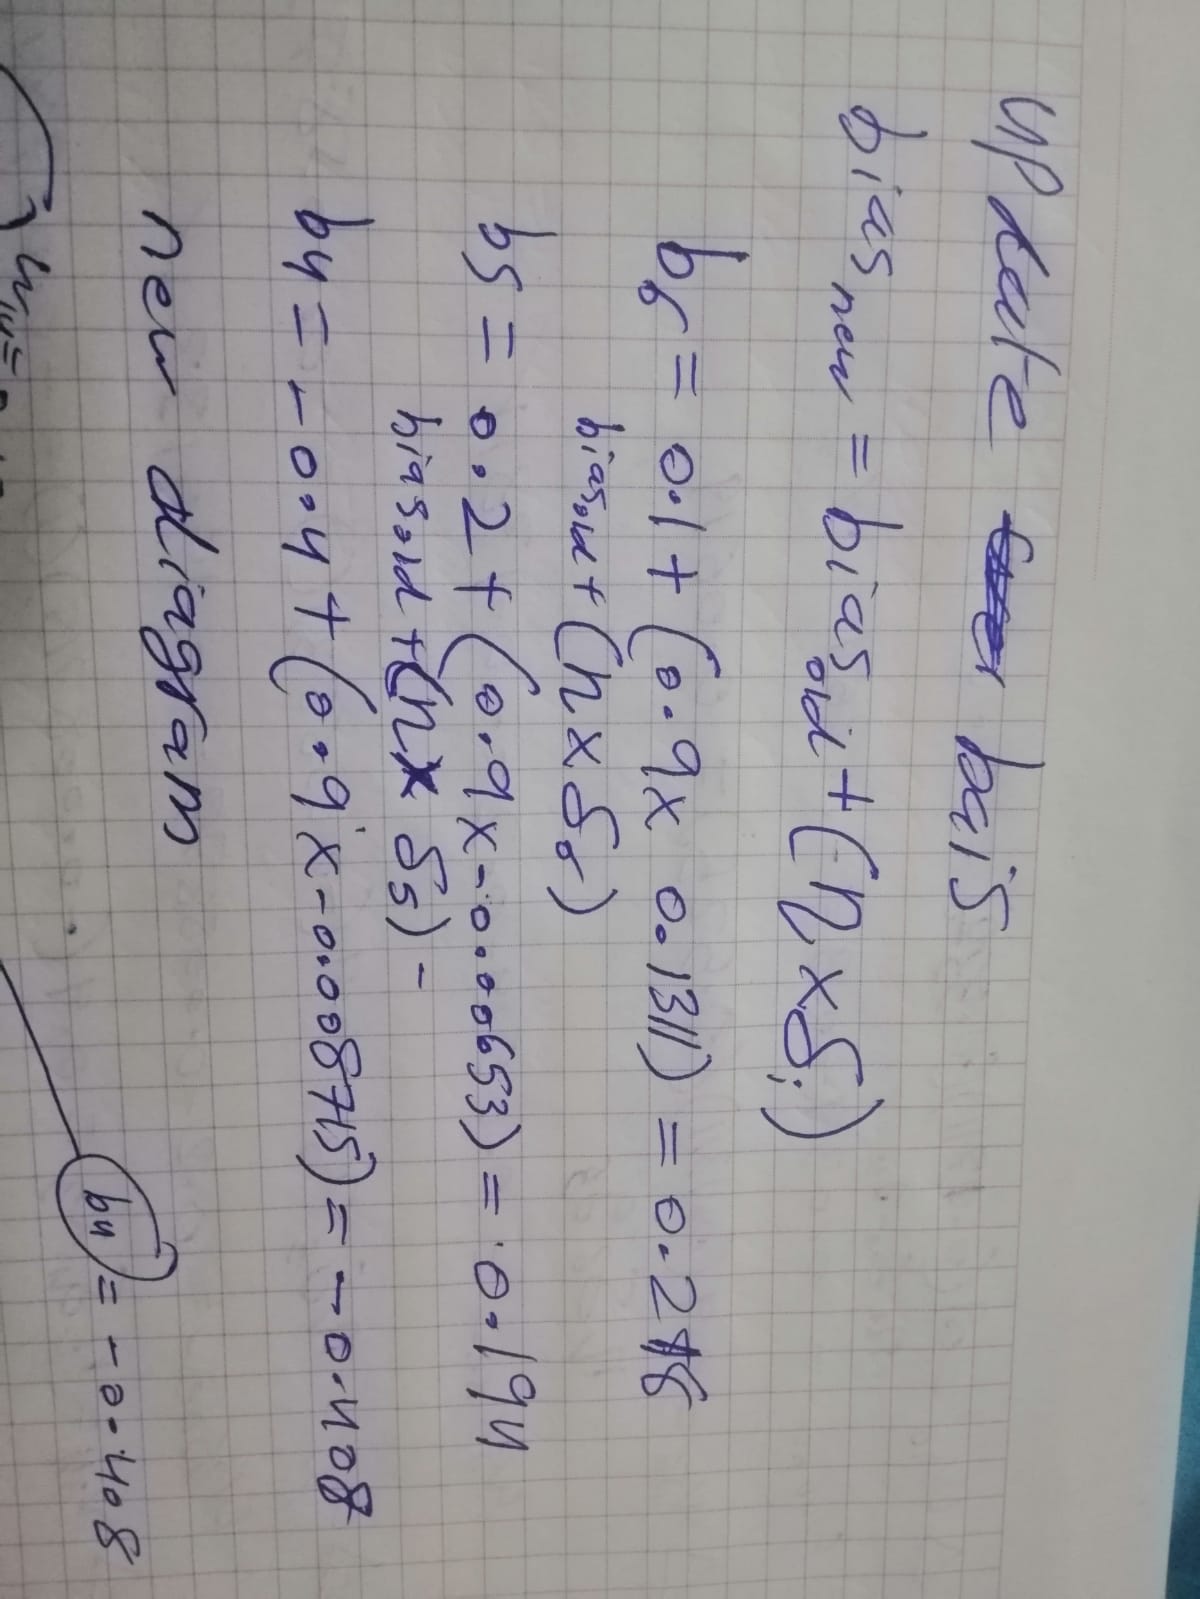 update bais
bias new = bias old + (η x δi)
b6 = 0.1 + (0.9 x 0.1311) = 0.218
bias old + (η x δ6)
b5 = 0.2 + (0.9 x -0.00653) = 0.194
bias old + (η x δ5) -
b4 = -0.4 + (0.9 x -0.008715) = -0.408
new diagram
b4 = -0.408